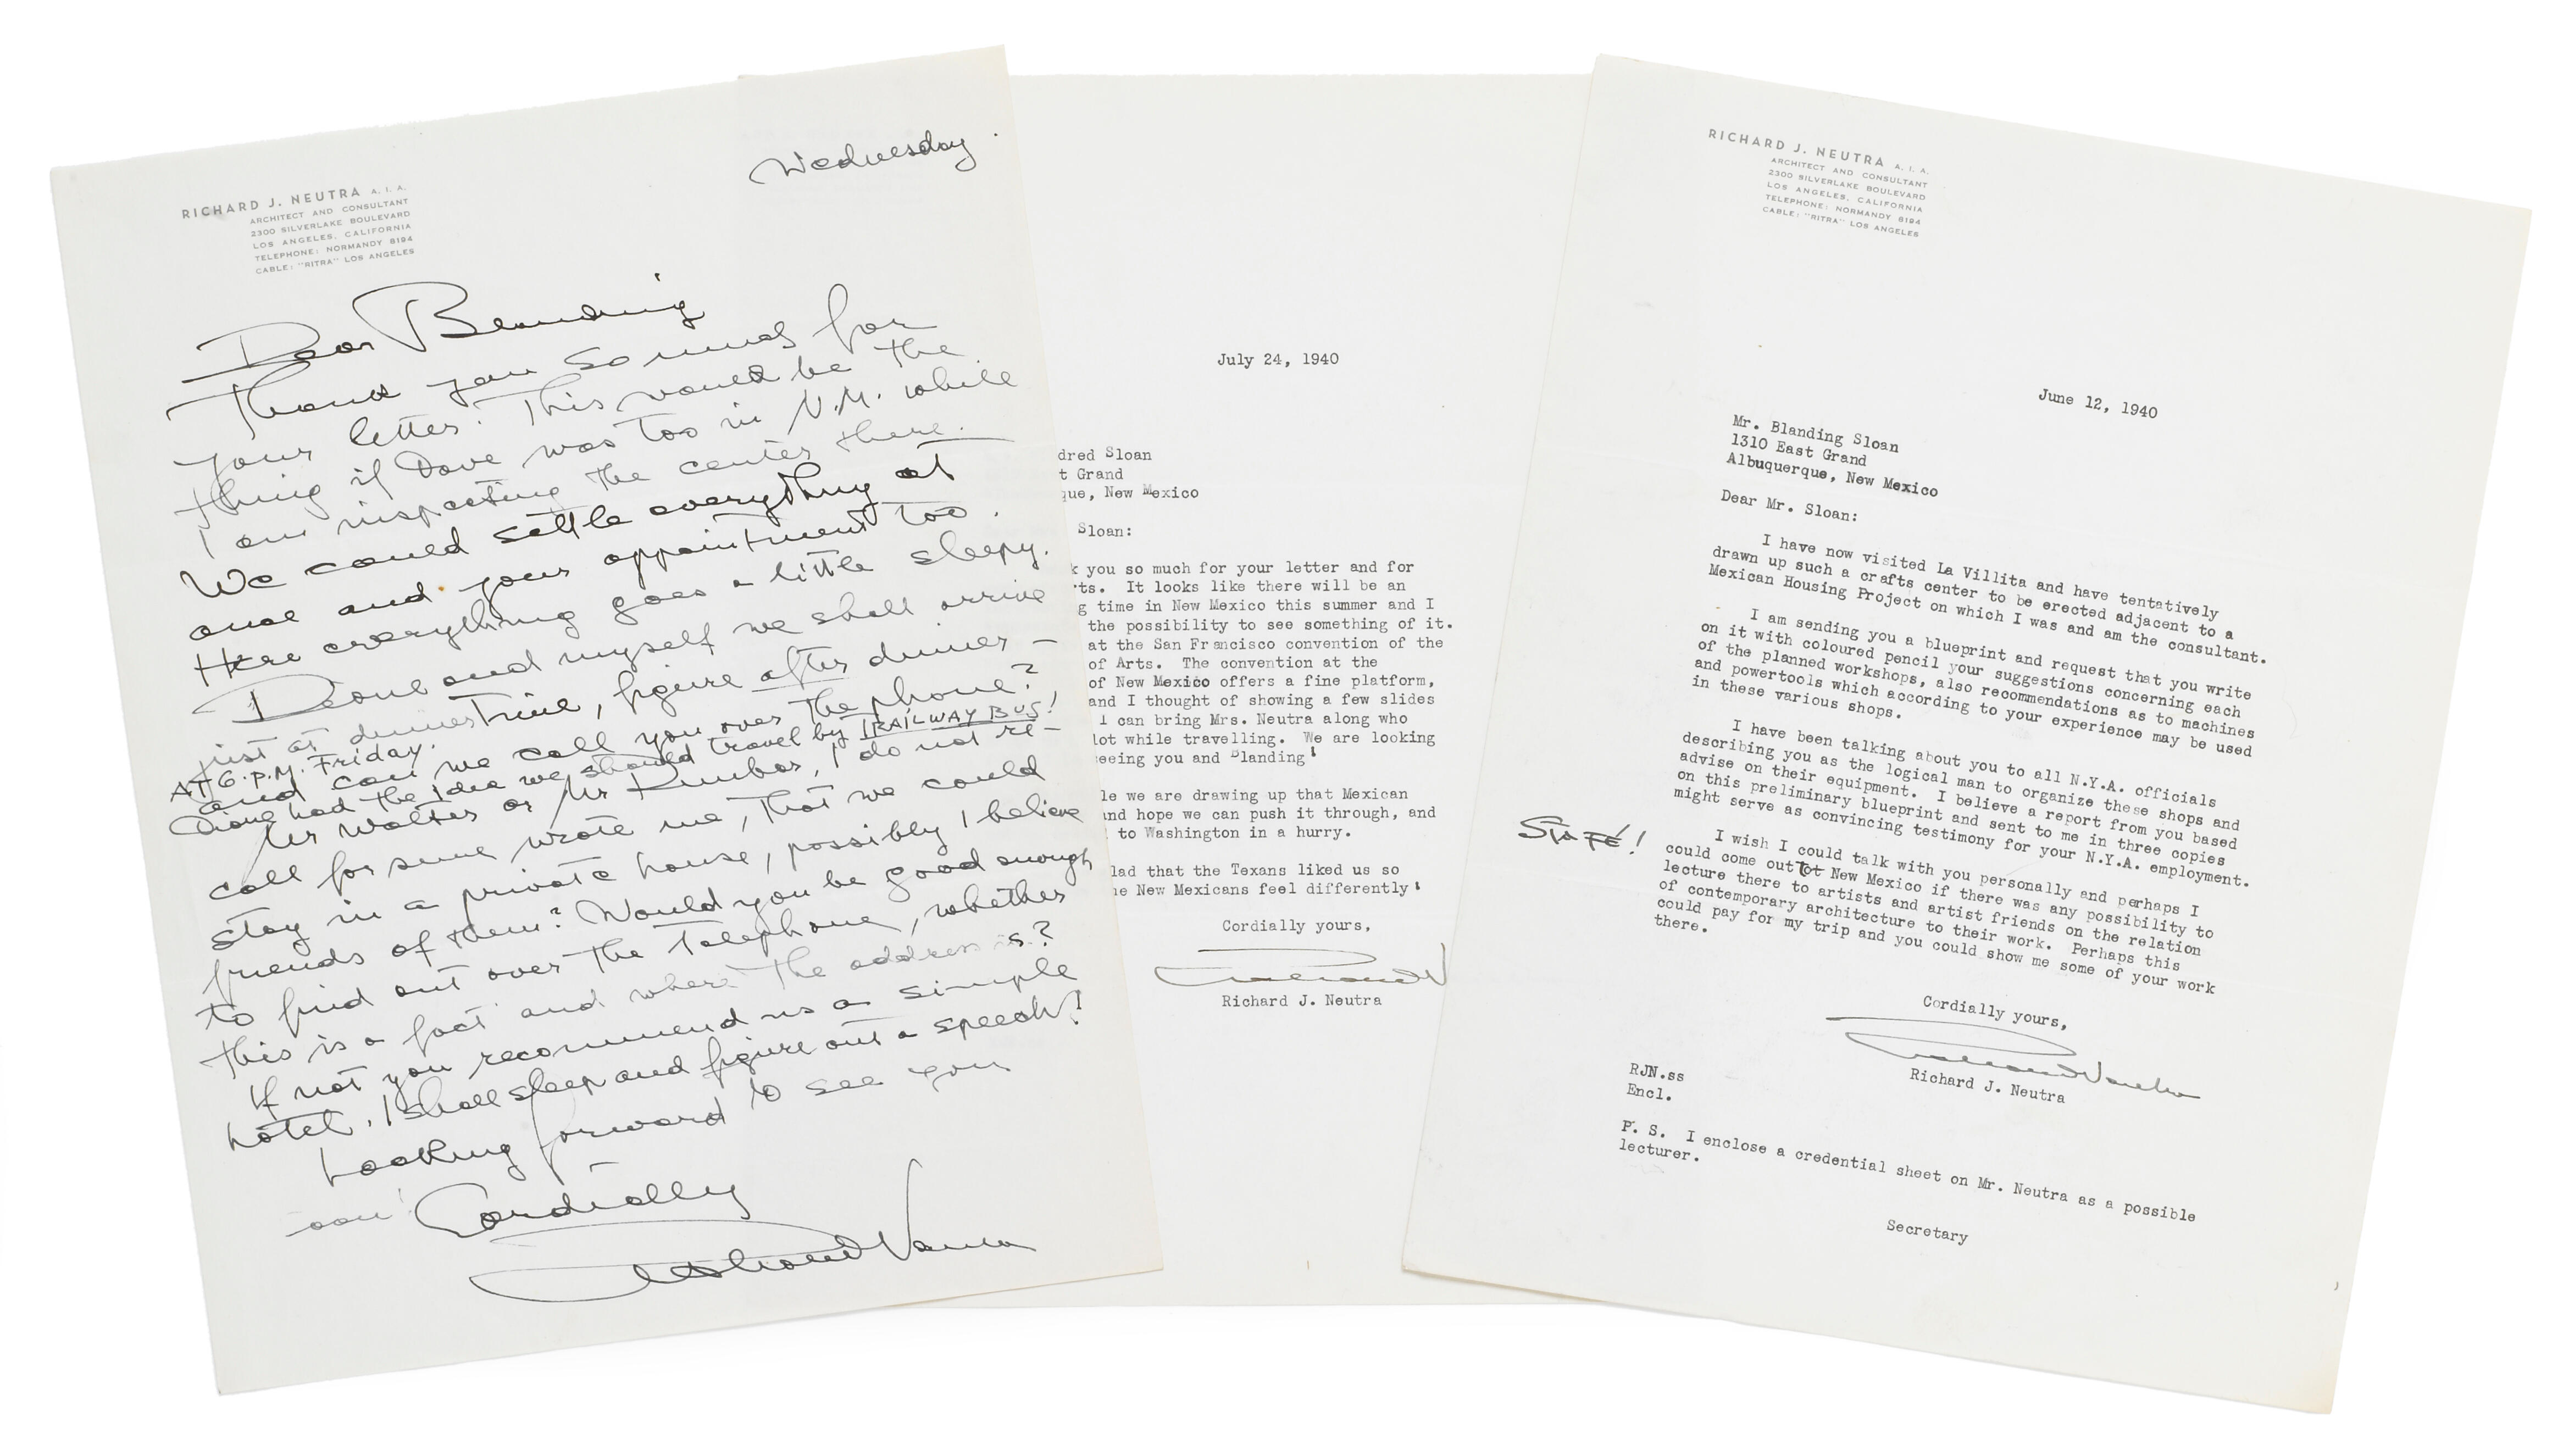 Wednesday.
RICHARD J. NEUTRA A. I. A.
ARCHITECT AND CONSULTANT
2300 SILVERLAKE BOULEVARD
LOS ANGELES, CALIFORNIA
TELEPHONE: NORMANDY 8194
CABLE: "RITRA" LOS ANGELES
Dear Blanding
Thank you so much for
your letter. This would be the
thing if Dave was too in N.M. while
I am inspecting the center there.
We could settle everything at
once and your appointment too.
Here everything goes a little sleepy.
Dione and myself we shall arrive
just at dinner time, figure after dinner –
AT 6.P.M. Friday.
and can we call you over the phone?
Dione had the idea we should travel by RAILWAY BUS!
Mr Walter or Mr , I do not re-
call for sure wrote me, that we could
stay in a private house, possibly I believe
friends of them? Would you be good enough
to find out over the telephone, whether
this is a fact and where the address is?
If not you recommend us a simple
hotel. I shall sleep and figure out a speech!
Looking forward to see you
soon! Cordially
Richard Neutra
July 24, 1940
dred Sloan
t Grand
que, New Mexico
Sloan:
k you so much for your letter and for
rts. It looks like there will be an
g time in New Mexico this summer and I
the possibility to see something of it.
at the San Francisco convention of the
of Arts. The convention at the
of New Mexico offers a fine platform,
and I thought of showing a few slides
I can bring Mrs. Neutra along who
lot while travelling. We are looking
seeing you and Blanding!
le we are drawing up that Mexican
and hope we can push it through, and
to Washington in a hurry.
lad that the Texans liked us so
e New Mexicans feel differently!
Cordially yours,
Richard J. Neutra
RICHARD J. NEUTRA A. I. A.
ARCHITECT AND CONSULTANT
2300 SILVERLAKE BOULEVARD
LOS ANGELES, CALIFORNIA
TELEPHONE: NORMANDY 8194
CABLE: "RITRA" LOS ANGELES
June 12, 1940
Mr. Blanding Sloan
1310 East Grand
Albuquerque, New Mexico
Dear Mr. Sloan:
I have now visited La Villita and have tentatively
drawn up such a crafts center to be erected adjacent to a
Mexican Housing Project on which I was and am the consultant.
I am sending you a blueprint and request that you write
on it with coloured pencil your suggestions concerning each
of the planned workshops, also recommendations as to machines
and powertools which according to your experience may be used
in these various shops.
I have been talking about you to all N.Y.A. officials
describing you as the logical man to organize these shops and
advise on their equipment. I believe a report from you based
on this preliminary blueprint and sent to me in three copies
might serve as convincing testimony for your N.Y.A. employment.
Sta FÉ!
I wish I could talk with you personally and perhaps I
could come out to New Mexico if there was any possibility to
lecture there to artists and artist friends on the relation
of contemporary architecture to their work. Perhaps this
could pay for my trip and you could show me some of your work
there.
Cordially yours,
Richard Neutra
Richard J. Neutra
RJN.ss
Encl.
P. S. I enclose a credential sheet on Mr. Neutra as a possible
lecturer.
Secretary